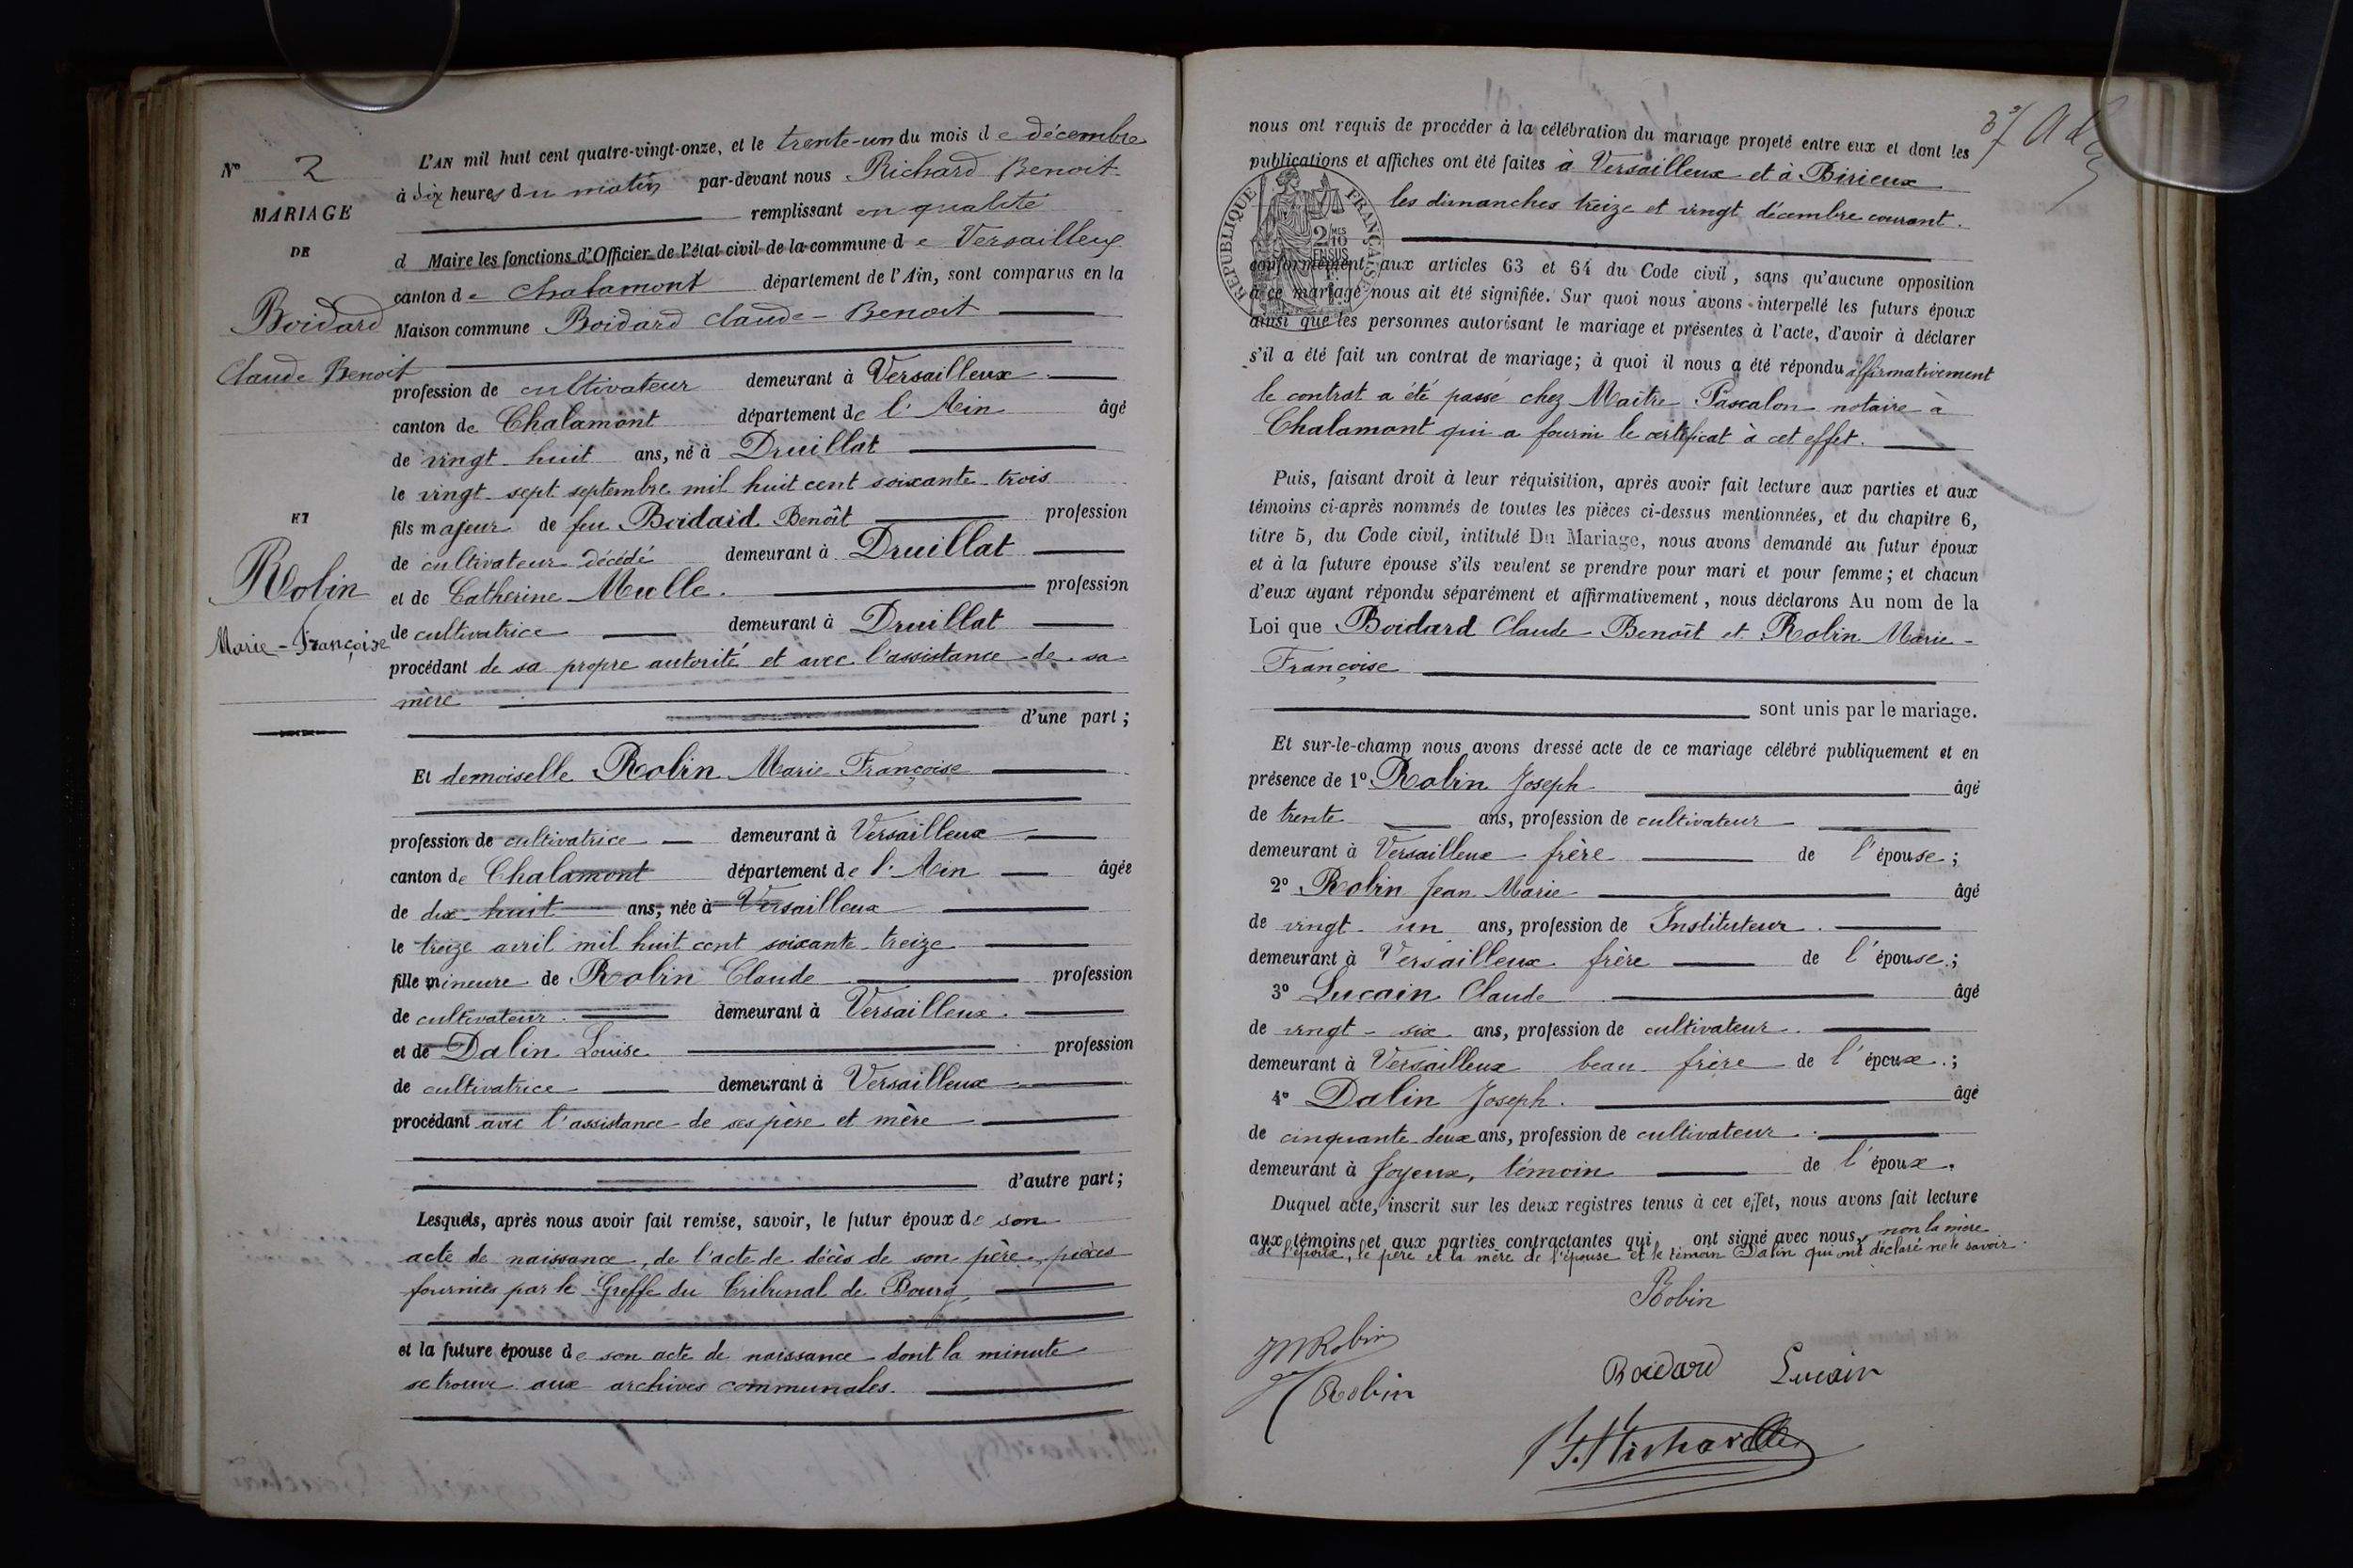 N° 2
MARIAGE
DE
Boidard
Claude Benoit
ET
Robin
Marie-Françoise
L'AN mil huit cent quatre-vingt-onze, et le trente-un du mois de décembre
à six heures du matin par-devant nous Richard Benoit
remplissant en qualité
d Maire les fonctions d'Officier de l'état civil de la commune de Versailleux
canton de Chalamont département de l'Ain, sont comparus en la
Maison commune Boidard Claude-Benoit
profession de cultivateur demeurant à Versailleux
canton de Chalamont département de l'Ain âgé
de vingt-huit ans, né à Druillat
le vingt-sept septembre mil huit cent soixante-trois
fils majeur de feu Boidard Benoît profession
de cultivateur décédé demeurant à Druillat
et de Catherine Mulle. profession
de cultivatrice demeurant à Druillat
procédant de sa propre autorité et avec l'assistance de sa
mère
d'une part;
Et demoiselle Robin Marie Françoise
profession de cultivatrice demeurant à Versailleux
canton de Chalamont département de l'Ain âgée
de dix-huit ans, née à Versailleux
le treize avril mil huit cent soixante-treize
fille mineure de Robin Claude profession
de cultivateur demeurant à Versailleux
et de Dalin Louise profession
de cultivatrice demeurant à Versailleux
procédant avec l'assistance de ses père et mère
d'autre part;
Lesquels, après nous avoir fait remise, savoir, le futur époux de son
acte de naissance, de l'acte de décès de son père, pièces
fournies par le Greffe du Tribunal de Bourg,
et la future épouse de son acte de naissance dont la minute
se trouve aux archives communales.
nous ont requis de procéder à la célébration du mariage projeté entre eux et dont les
publications et affiches ont été faites à Versailleux et à Birieux
les dimanches treize et vingt décembre courant.
RÉPUBLIQUE FRANÇAISE
2/10 MES
EN SUS
conformément aux articles 63 et 64 du Code civil, sans qu'aucune opposition
à ce mariage nous ait été signifiée. Sur quoi nous avons interpellé les futurs époux
ainsi que les personnes autorisant le mariage et présentes à l'acte, d'avoir à déclarer
s'il a été fait un contrat de mariage; à quoi il nous a été répondu affirmativement
le contrat a été passé chez Maître Pascalon notaire à
Chalamont qui a fourni le certificat à cet effet.
Puis, faisant droit à leur réquisition, après avoir fait lecture aux parties et aux
témoins ci-après nommés de toutes les pièces ci-dessus mentionnées, et du chapitre 6,
titre 5, du Code civil, intitulé Du Mariage, nous avons demandé au futur époux
et à la future épouse s'ils veulent se prendre pour mari et pour femme; et chacun
d'eux ayant répondu séparément et affirmativement, nous déclarons Au nom de la
Loi que Boidard Claude-Benoît et Robin Marie-
Françoise
sont unis par le mariage.
Et sur-le-champ nous avons dressé acte de ce mariage célébré publiquement et en
présence de 1° Robin Joseph âgé
de trente ans, profession de cultivateur
demeurant à Versailleux frère de l'épouse;
2° Robin Jean Marie âgé
de vingt-un ans, profession de Instituteur.
demeurant à Versailleux frère de l'épouse;
3° Lucain Claude âgé
de vingt-six ans, profession de cultivateur.
demeurant à Versailleux beau-frère de l'époux.;
4° Dalin Joseph. âgé
de cinquante-deux ans, profession de cultivateur.
demeurant à Joyeux, témoin de l'époux.
Duquel acte, inscrit sur les deux registres tenus à cet effet, nous avons fait lecture
aux témoins et aux parties contractantes qui ont signé avec nous, non la mère
de l'époux, le père et la mère de l'épouse et le témoin Dalin qui ont déclaré ne le savoir.
Robin
JM Robin
Robin
Boidard Lucain
Richard